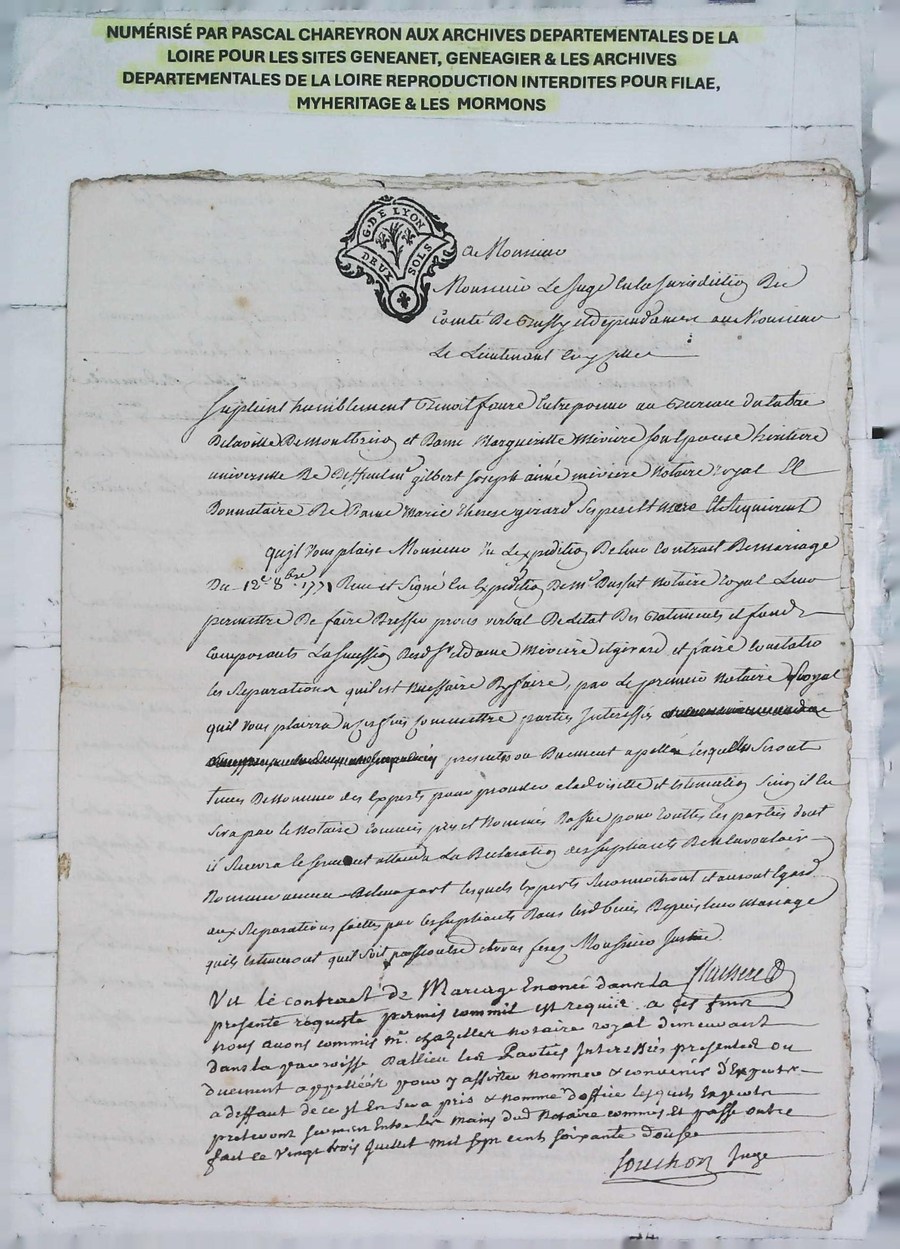 NUMÉRISÉ PAR PASCAL CHAREYRON AUX ARCHIVES DEPARTEMENTALES DE LA
LOIRE POUR LES SITES GENEANET, GENEAGIER & LES ARCHIVES
DEPARTEMENTALES DE LA LOIRE REPRODUCTION INTERDITES POUR FILAE,
MYHERITAGE & LES MORMONS
G. DE LYON
DEUX SOLS
A Monsieur
Monsieur Le Juge en la Jurisdiction Du
Comté De et dependances ou Monsieur
Le Lieutenant
Suplient humblement Benoit faure Entreposeur au Bureau du tabac
Delaville De montbrison et Dame Marguerite Mévière Son Epouse heritiere
universelle De Deffunt Sr gilbert Joseph aîné mévière Notaire royal Et
Donnataire De Dame Marie therese girard Ses pere et mere Et Requierent
quil vous plaise Monsieur vu Lexpedition De leur Contract De mariage
Du 12e 8bre 1771 Recu et Signé En Expedition De Me Notaire royal Leur
permettre De faire Dresser procès verbal De letat Des Batiments et fonds
Composants La Succession Desd Sr et dame Mévière et girard et faire Constater
les Reparations quil est Necessaire Dy faire, par Le premier Notaire Royal
quil vous plairra Commettre parties Interessées
presentes ou Duement apellées Lesquelles Seront
tenues De nommer des Experts pour proceder a la visitte et Estimation Sinon il en
Sera par le Notaire Commis pris et Nommés Doffice pour touttes les parties dont
il Recevra le Serment attendu La Declaration des Supliants De
Nommer aucun De leur part lesquels Experts Reconnoitront et auront Egard
aux Reparations faittes par les Supliants Dans lesd biens Depuis leur Mariage
quils Estimeront quil Soit passé outre et vous ferez Monsieur Justice.
Vû le contract de Mariage Enoncé dans la
presente requeste permis commil est requis a cet fins
nous avons commis Me chazelles notaire royal demeurant
dans la parroisse les Parties Interessées presentes ou
duement appellées pour y assister nommer & convenir d'Experts
a deffaut de ce Il En Sera pris & nommé d'office lesquels Experts
preteront Serment Entre les mains dud Notaire commis Et passé outre
fait le vingt trois Juillet mil Sept cent soixante douse
Souchon Juge